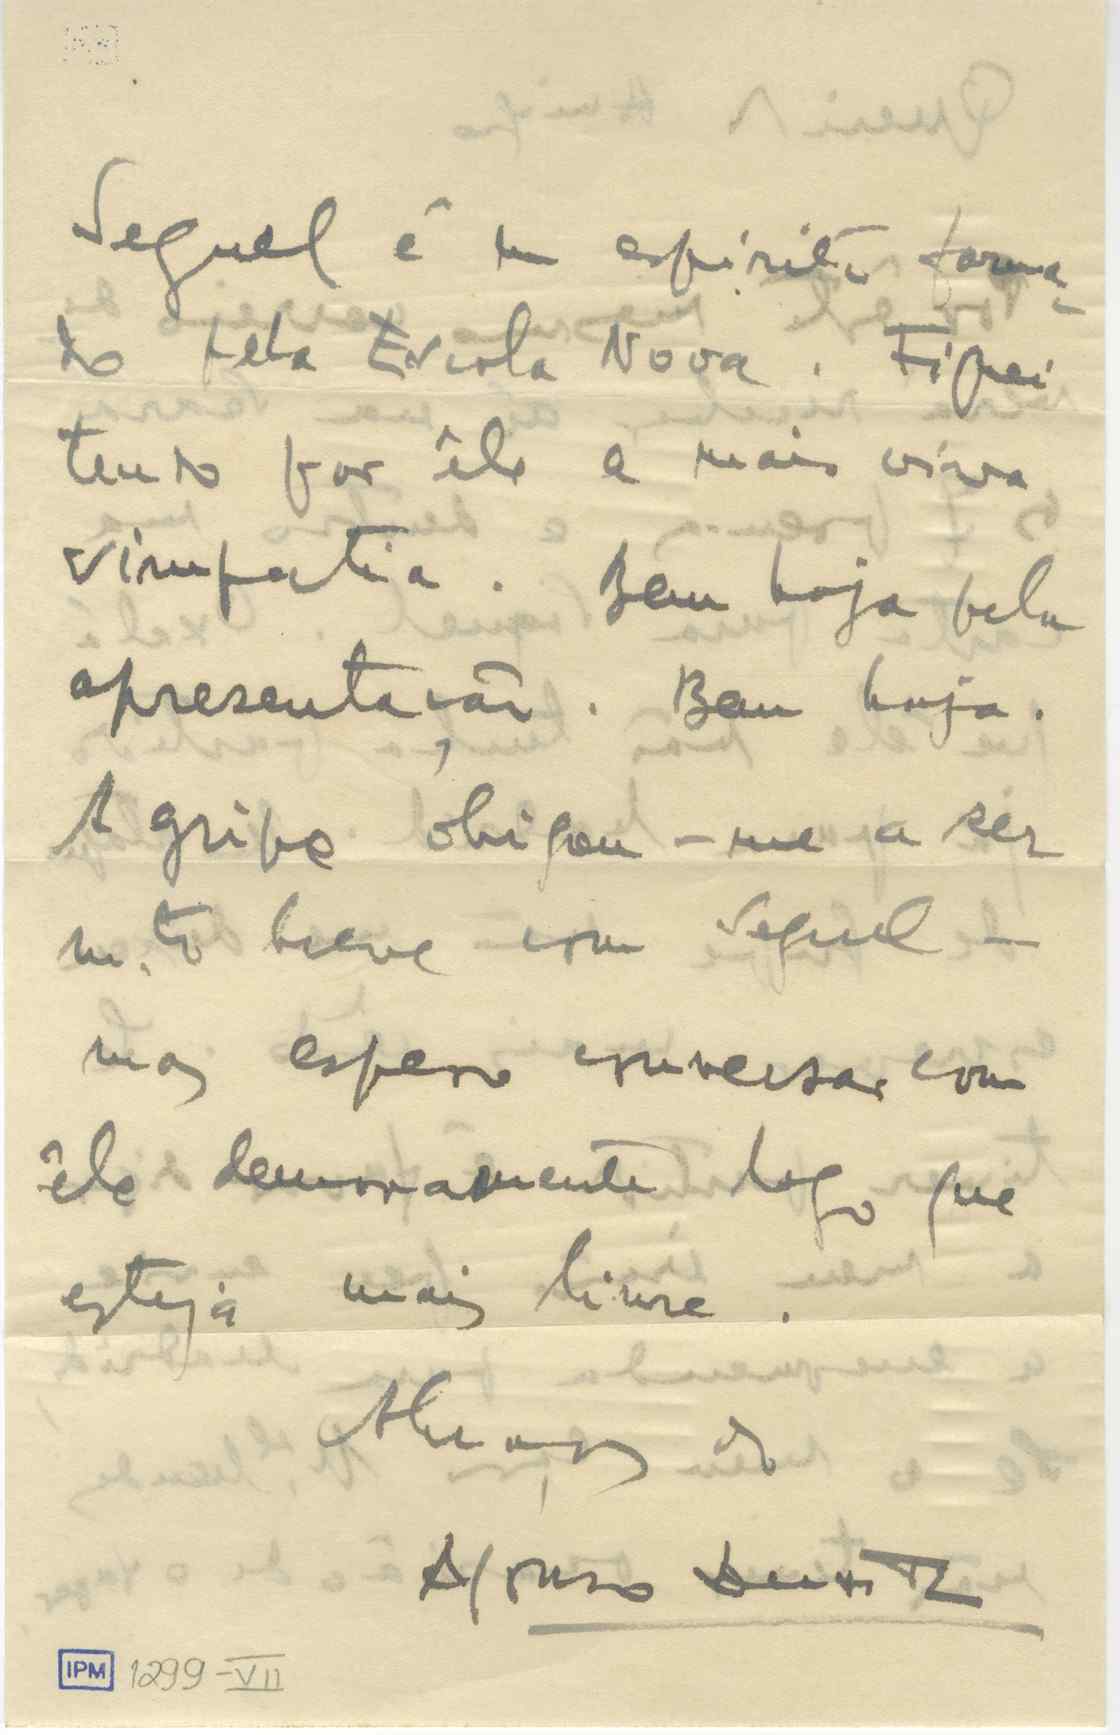 Seguel é um espirito forma-
do pela Escola Nova. Fiquei
tendo por êle a mais viva
simpatia. Bem haja pela
apresentação. Bem haja.
A gripe obigou-me a ser
m.to breve com Seguel —
mas espero conversar com
êle demoramente logo que
esteja mais livre.
Abraços do
Afonso Duarte
IPM 1299-VII